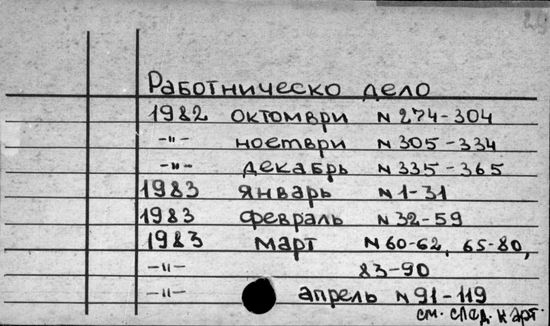 Работническо дело
1982 октомври N 274-304
-"- ноември N 305-334
-"- декабрь N 335-365
1983 январь N 1-31
1983 февраль N 32-59
1983 март N 60-62, 65-80,
-"- 83-90
-"- апрель N 91-119
см. след. карт.